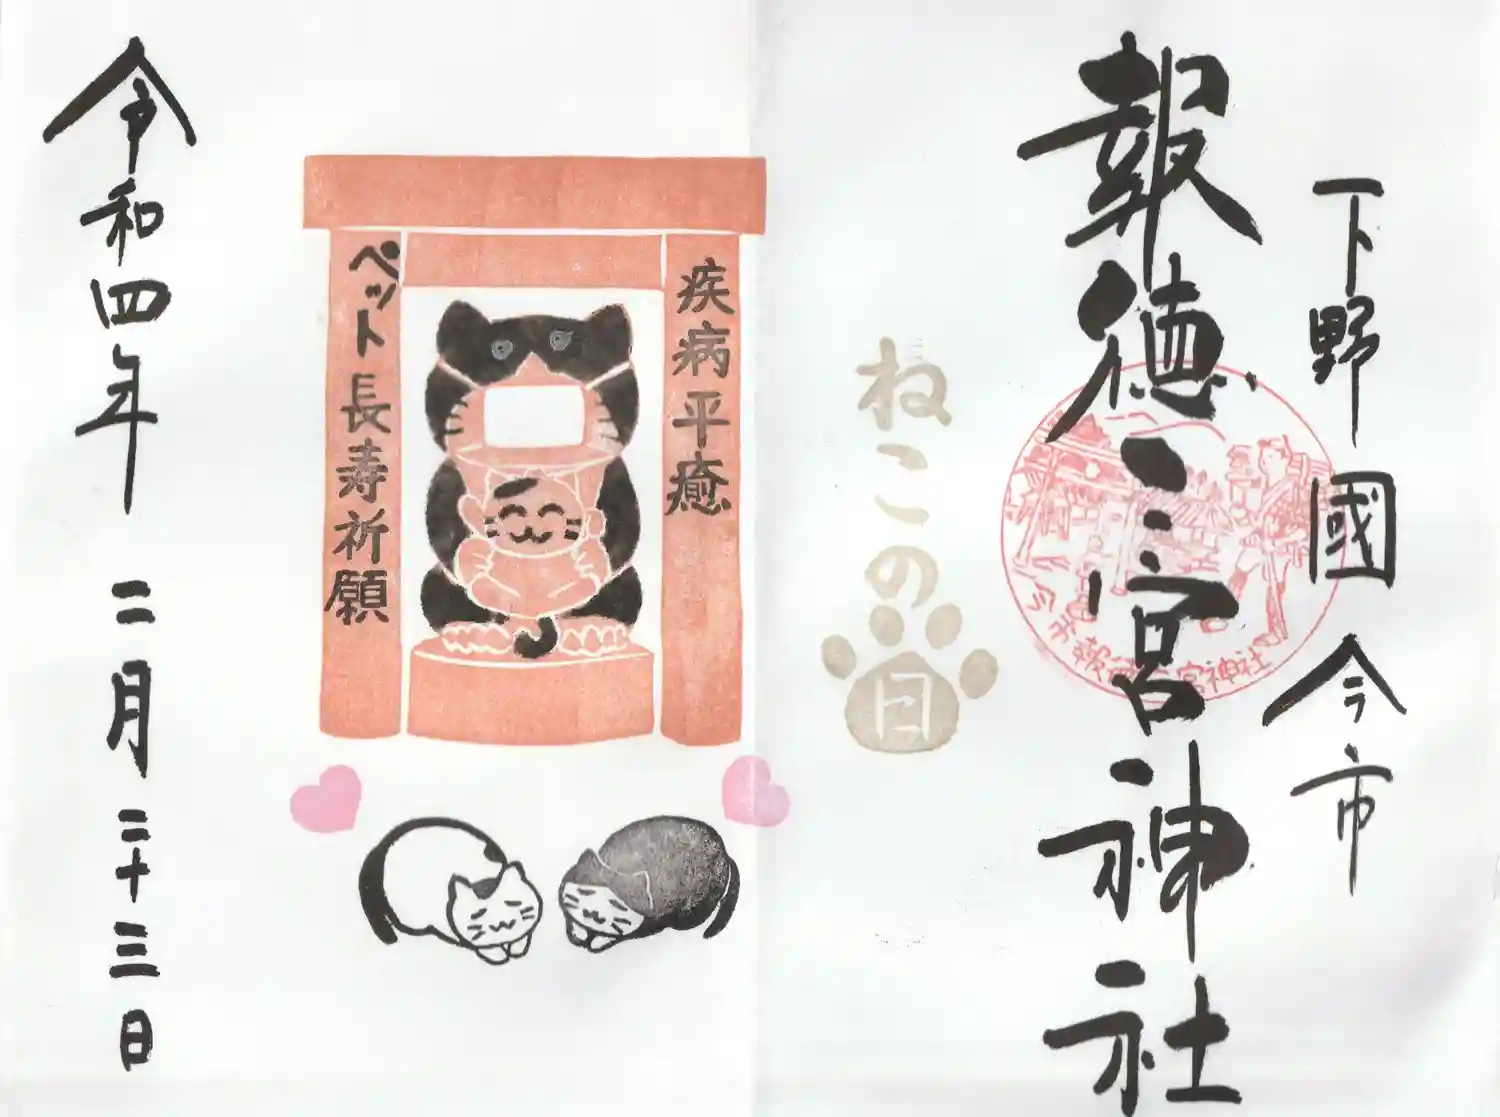 下野國今市
報徳二宮神社
今市報徳二宮神社
ねこの日
疾病平癒
ペット長寿祈願
令和四年二月二十三日